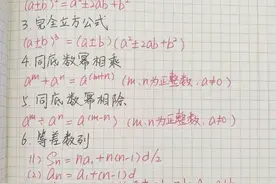 (a±b)²=a²±2ab+b²
3.完全立方公式
(a±b)³=(a±b)(a²±2ab+b²)
4.同底数幂相乘
aᵐ+aⁿ=a⁽ᵐ⁺ⁿ⁾(m、n为正整数,a≠0)
5.同底数幂相除
aᵐ÷aⁿ=a⁽ᵐ⁻ⁿ⁾(m、n为正整数,a≠0)
6.等差数列
(1) Sn=na₁+n(n-1)d/2
(2) an=a₁+(n-1)d